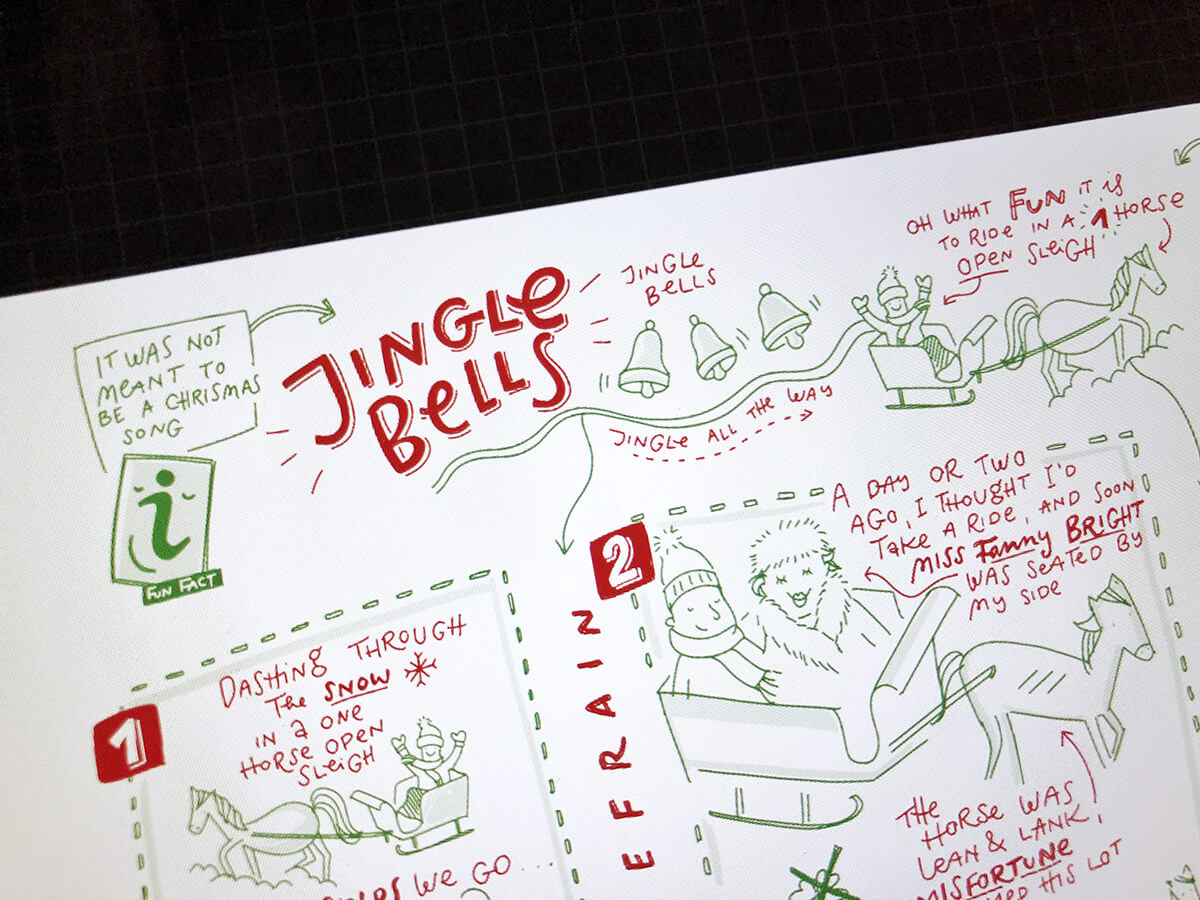 IT WAS NOT
MEANT TO
BE A CHRISMAS
SONG
i
FUN FACT
JINGLE
BELLS
JINGLE
BELLS
JINGLE ALL THE WAY
OH WHAT FUN IT IS
TO RIDE IN A 1 HORSE
OPEN SLEIGH
1
DASHING THROUGH
THE SNOW
IN A ONE
HORSE OPEN
SLEIGH
WE GO...
EFRAIN
2
A DAY OR TWO
AGO, I THOUGHT I'D
TAKE A RIDE, AND SOON
MISS FANNY BRIGHT
WAS SEATED BY
MY SIDE
THE
HORSE WAS
LEAN & LANK,
MISFORTUNE
HIS LOT